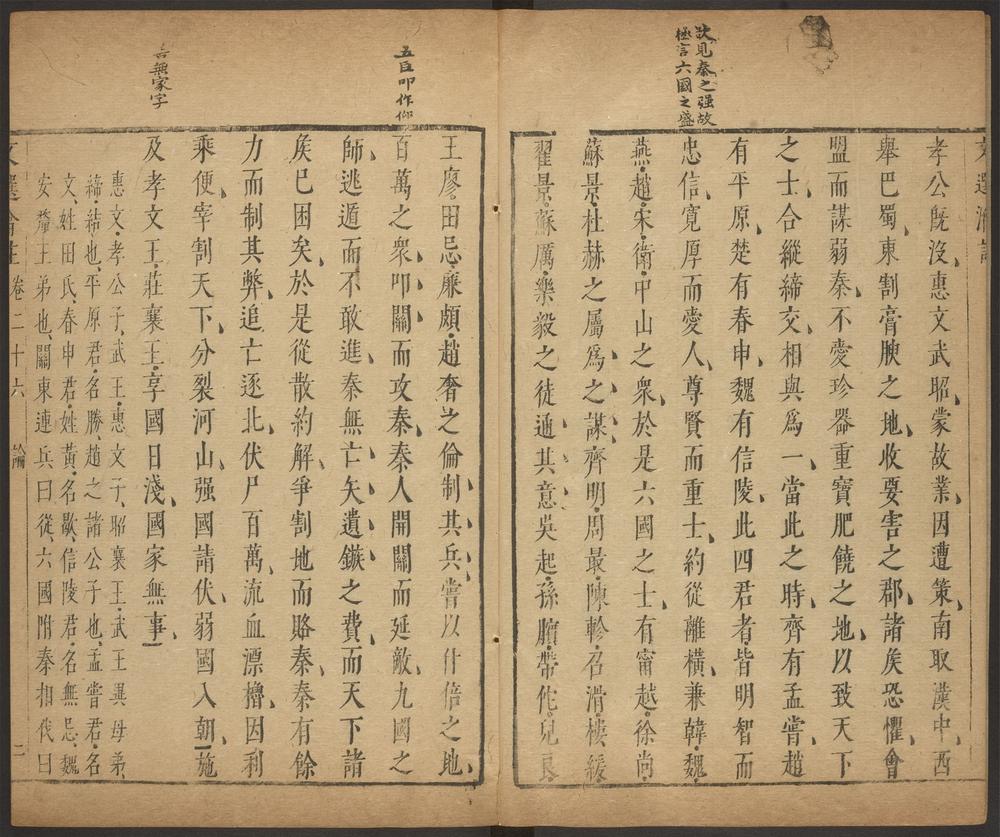 文選瀹註
欲見秦之强故
極言六國之盛
孝公旣沒惠文武昭蒙故業因遭策南取漢中西
舉巴蜀東割膏腴之地收要害之郡諸矦恐懼會
盟而謀弱秦不愛珍器重寶肥饒之地以致天下
之士合縱締交相與爲一當此之時齊有孟嘗趙
有平原楚有春申魏有信陵此四君者皆明智而
忠信寬厚而愛人尊賢而重士約從離橫兼韓魏
燕趙宋衛中山之衆於是六國之士有甯越徐尚
蘇景杜赫之屬爲之謀齊明周最陳軫召滑樓緩
翟景蘇厲樂毅之徒通其意吳起孫臏帶佗兒良
五臣叩作仰
王廖田忌廉頗趙奢之倫制其兵嘗以什倍之地
百萬之衆叩關而攻秦秦人開關而延敵九國之
師逃遁而不敢進秦無亡矢遺鏃之費而天下諸
矦已困矣於是從散約解爭割地而賂秦秦有餘
力而制其弊追亡逐北伏尸百萬流血漂櫓因利
乘便宰割天下分裂河山强國請伏弱國入朝施
善無家字
及孝文王莊襄王享國日淺國家無事
惠文孝公子武王惠文子昭襄王武王異母弟
締結也平原君名勝趙之諸公子也孟嘗君名
文姓田氏春申君姓黃名歇信陵君名無忌魏
安釐王弟也關東連兵曰從六國附秦相伐曰
文選瀹註卷二十六 論 二